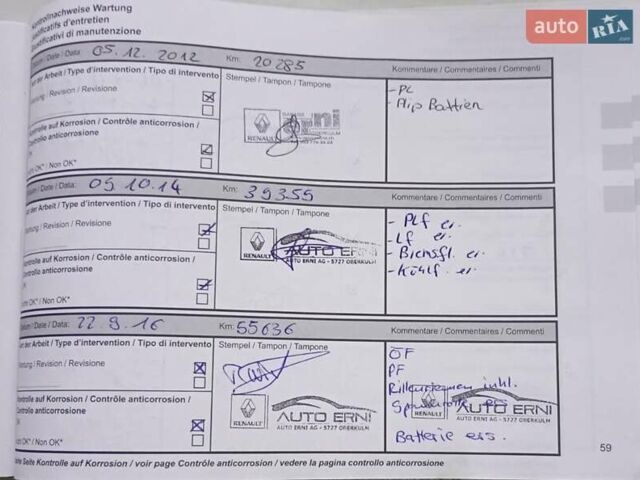 Kontrollnachweise Wartung
Justificatifs d'entretien
Giustificativi di manutenzione
auto RIA.com
Datum / Date / Data: 05.12.2012 Km: 20285 Kommentare / Commentaires / Commenti
Art der Arbeit / Type d'intervention / Tipo di intervento Stempel / Tampon / Tampone
Wartung / Revision / Revisione
- PL
RENAULT
Kontrolle auf Korrosion / Contrôle anticorrosion /
Controllo anticorrosione
OK
Nicht OK* / Non OK*
Datum / Date / Data: 09.10.14 Km: 39355 Kommentare / Commentaires / Commenti
Art der Arbeit / Type d'intervention / Tipo di intervento Stempel / Tampon / Tampone
Wartung / Revision / Revisione
- PLf er.
- Lf er.
- Bremsfl. er.
- Kühlf. er.
RENAULT AUTO ERNI
AUTO ERNI AG - 5727 OBERKULM
Kontrolle auf Korrosion / Contrôle anticorrosion /
Controllo anticorrosione
OK
Nicht OK* / Non OK*
Datum / Date / Data: 22.9.16 Km: 55636 Kommentare / Commentaires / Commenti
Art der Arbeit / Type d'intervention / Tipo di intervento Stempel / Tampon / Tampone
Wartung / Revision / Revisione
ÖF
PF
inkl.
RENAULT AUTO ERNI
AUTO ERNI AG - 5727 OBERKULM
RENAULT AUTO ERNI
AUTO ERNI AG - 5727 OBERKULM
Batterie ers.
Kontrolle auf Korrosion / Contrôle anticorrosion /
Controllo anticorrosione
OK
Nicht OK* / Non OK*
59
Siehe Seite Kontrolle auf Korrosion / voir page Contrôle anticorrosion / vedere la pagina controllo anticorrosione